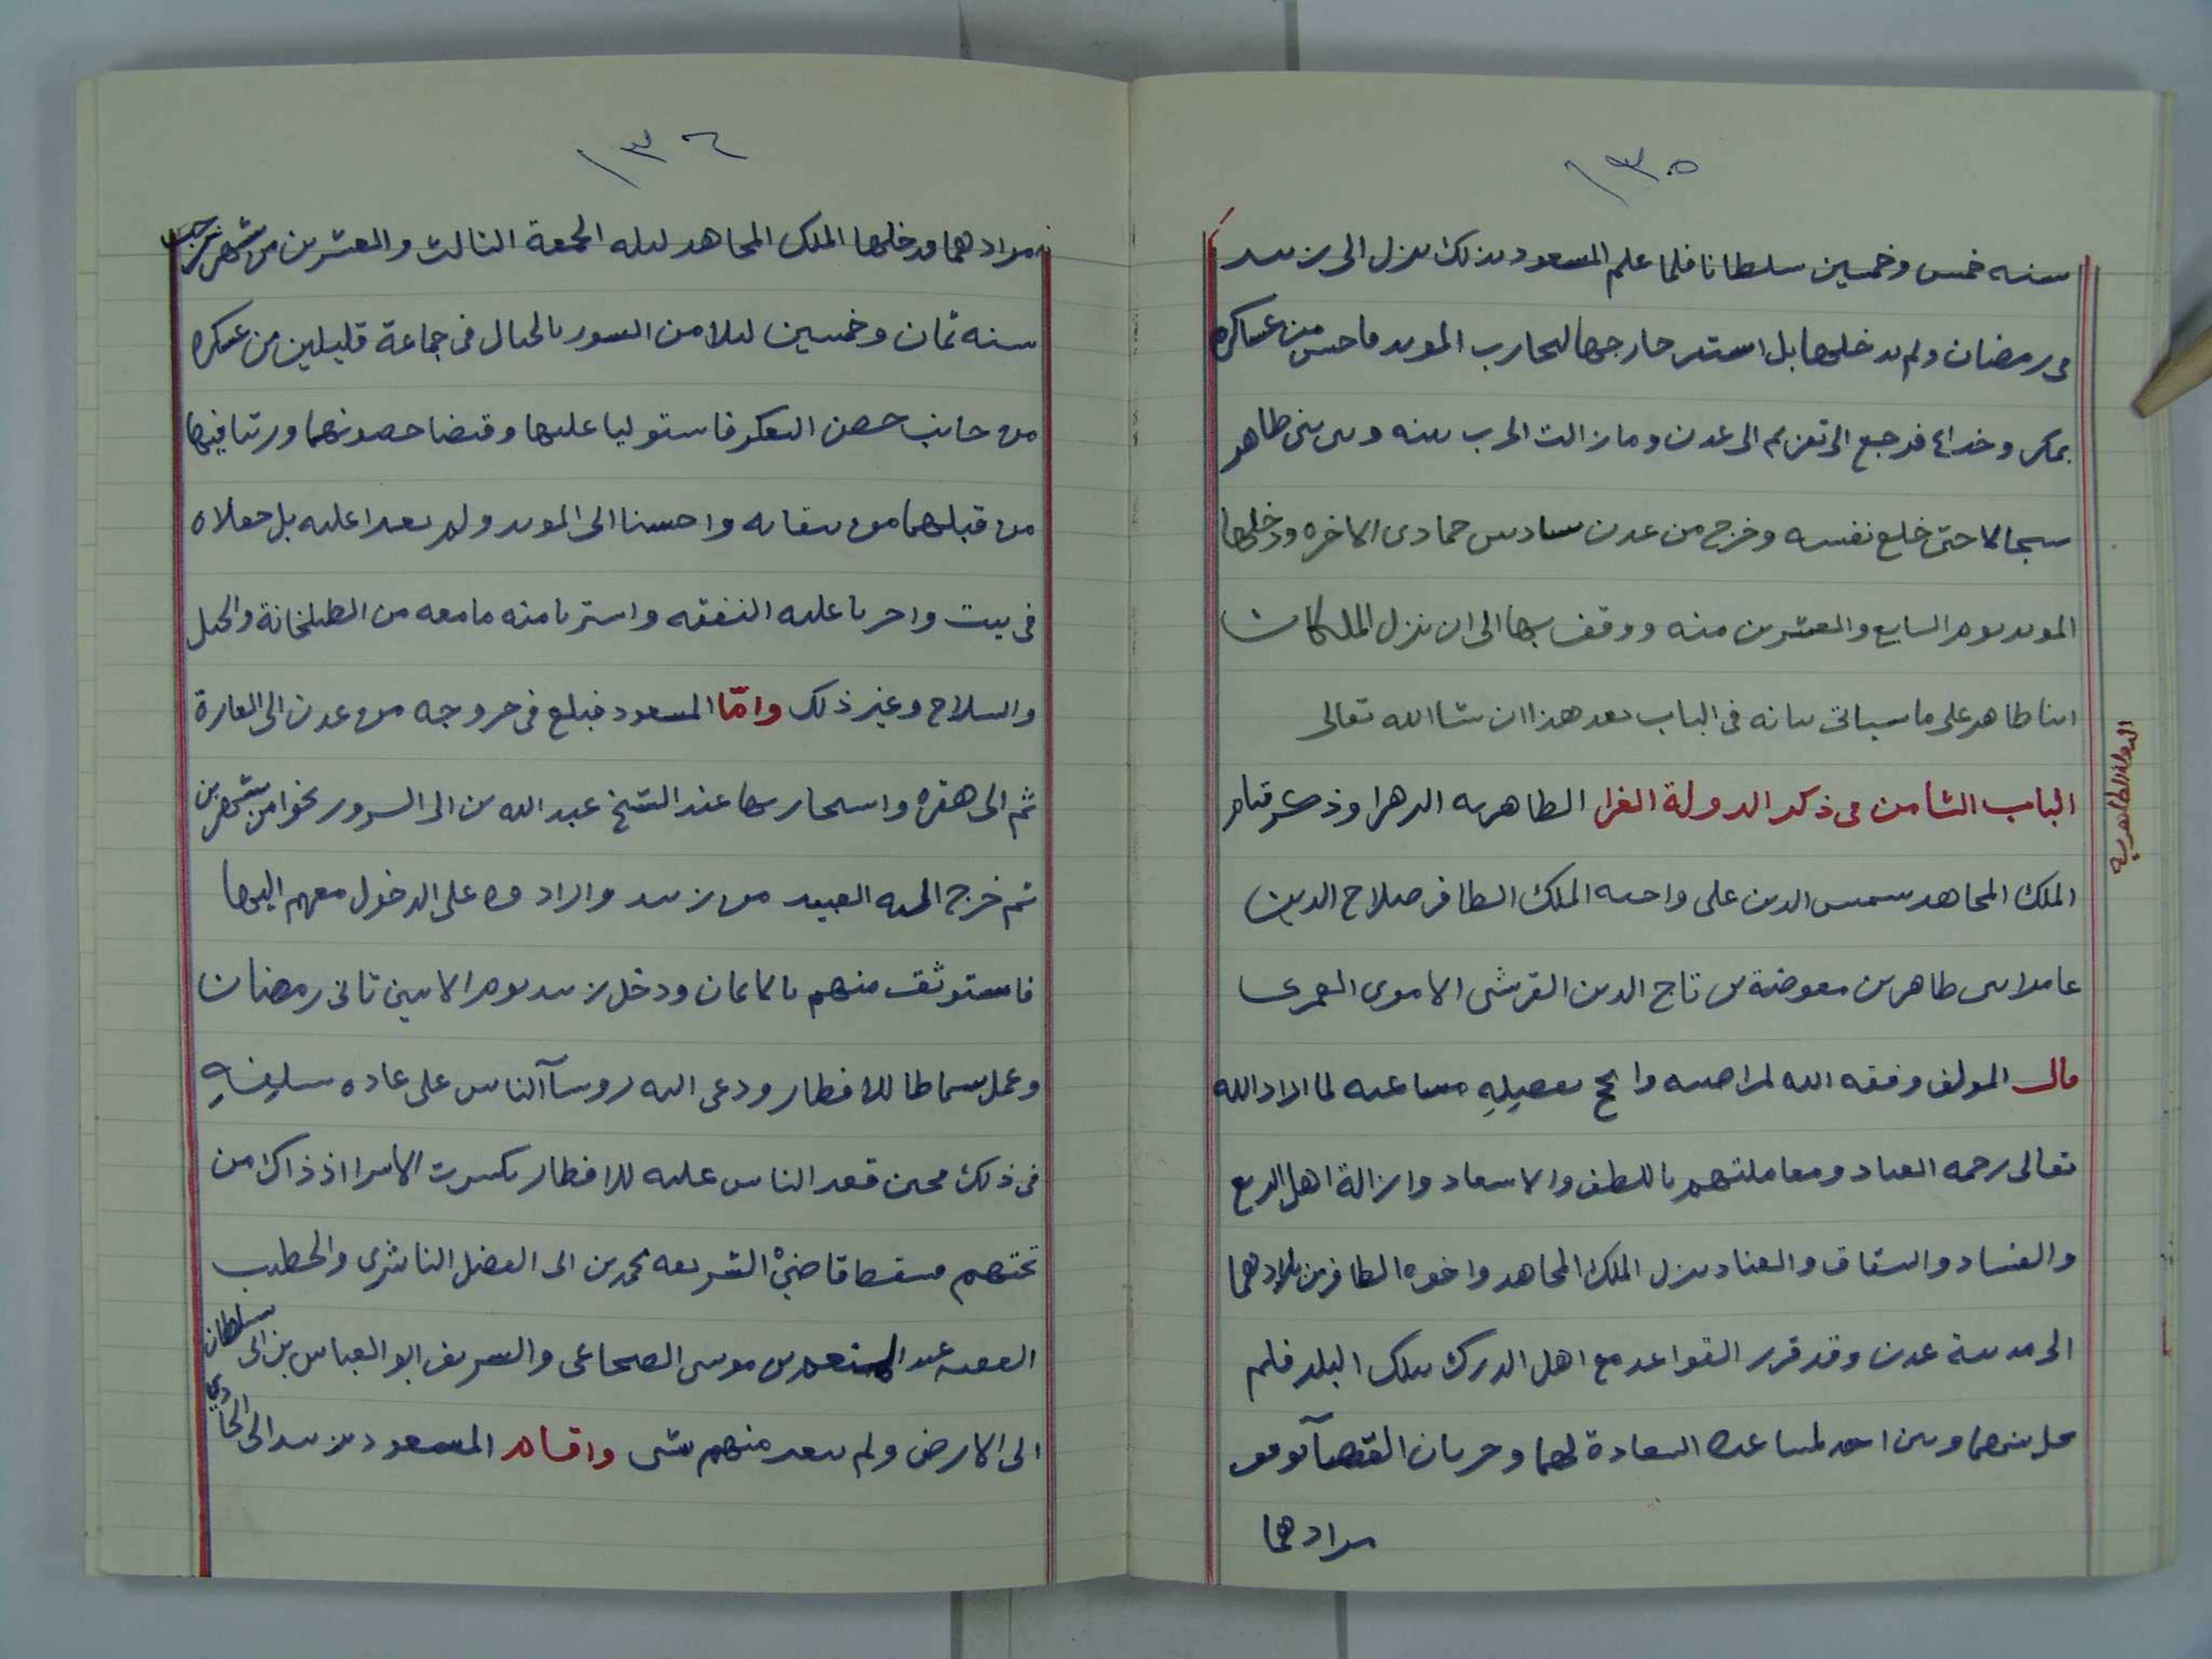 ١٣٥
سنه خمس وخمسين سلطانا فلما علم المسعود بذلك نزل الى زبيد
فى رمضان ولم يدخلها بل استمر خارجها ليحارب المويد فاحس من عساكره
بمكر وخداع فرجع الى تعز ثم الى عدن وما زالت الحرب بينه وبين بنى طاهر
سجالا حتى خلع نفسه وخرج من عدن سادس جمادى الاخره ودخلها
المويد يوم السابع والعشرين منه ووقف بها الى ان نزل الملكان
ابنا طاهر على ما سياتى بيانه فى الباب بعد هذا ان شا الله تعالى
الدولة الطاهرية
الباب الثامن فى ذكر الدولة الغرا الطاهريه الزهرا وذكر قيام
الملك المجاهد شمس الدين على واخيه الملك الظافر صلاح الدين
عامر ابنى طاهر بن معوضة بن تاج الدين القرشى الاموى العمرى
قال المولف وفقه الله لمراضيه وانجح بفضله مساعيه لما اراد الله
تعالى رحمه العباد ومعاملتهم باللطف والاسعاد وازالة اهل الزيغ
والفساد والشقاق والعناد نزل الملك المجاهد واخوه الظافر من بلادهما
الى مدينة عدن وقد قررا القواعد مع اهل الدرك بتلك البلد فلم
يحل بينهما وبين احد لمساعده السعادة لهما وجريان القضآ بوفق
مرادهما
١٣٦
مرادهما ودخلها الملك المجاهد ليله الجمعة الثالث والعشرين من شهر رجب
سنه ثمان وخمسين ليلا من السور بالحبال فى جماعة قليلين من عسكره
من جانب حصن التعكر فاستوليا عليها وقبضا حصونهما ورتبا فيها
من قبلهما من يثقا به واحسنا الى المويد ولم يغيرا عليه بل جعلاه
فى بيت واجريا عليه النفقه واشتريا منه ما معه من الطبلخانة والخيل
والسلاح وغير ذلك وامّا المسعود فبلغ فى خروجه من عدن الى العارة
ثم الى هقره واستجار بها عند الشيخ عبد الله بن ابى السرور نحوا من شهرين
ثم خرج اليه العبيد من زبيد وارادوه على الدخول معهم اليها
فاستوثق منهم بالايمان ودخل زبيد يوم الاثنين ثانى رمضان
وعمل سماطا للافطار ودعى اليه روسآ الناس على عاده سلفه
فى ذلك فحين قعد الناس عليه للافطار تكسرت الاسرا اذ ذاك من
تحتهم فسقط قاضىْ الشريعه محمد بن ابى الفضل الناشرى والخطيب
الفقيه عبد المنعم بن موسى الضجاعى والشريف ابو العباس بن ابى سلطان
الى الارض ولم يتغير منهم شى واقام المسعود بزبيد الى الحادي